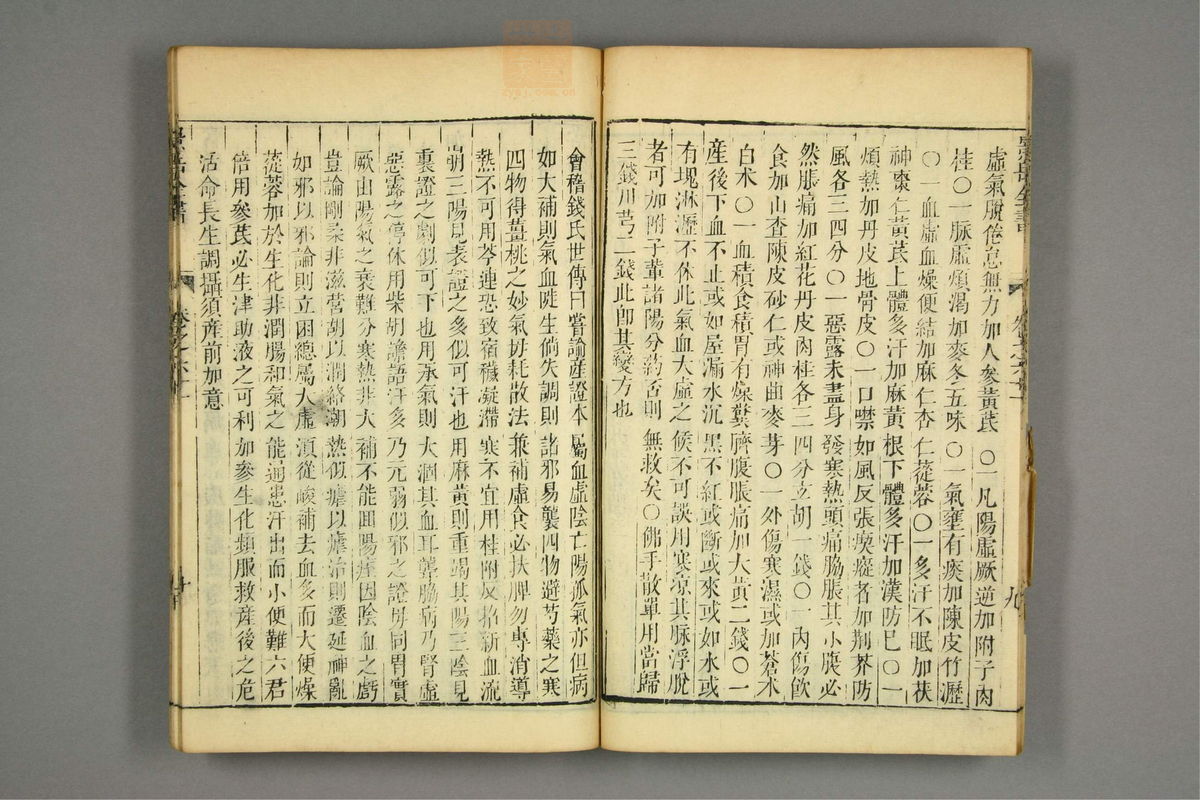 虛氣脫倦怠無力加人參黃芪○凡陽虛厥逆加附子肉
桂○一脈虛煩渴加麥冬五味○一氣壅有痰加陳皮竹瀝
○一血虛血燥便結加麻仁杏仁蓯蓉○一多汗不眠加茯
神棗仁黃芪上體多汗加麻黃根下體多汗加漢防巳○一
煩熱加丹皮地骨皮○一口噤如風反張瘈瘲者加荆芥防
風各三四分○一惡露未盡身發寒熱頭痛脇脹其小腹必
然脹痛加紅花丹皮肉桂各三四分玄胡一錢○一內傷飲
食加山查陳皮砂仁或神曲麥芽○一外傷寒濕或加蒼术
白术○一血積食積胃有燥糞臍腹脹痛加大黃二錢○一
產後下血不止或如屋漏水沉黑不紅或斷或來或如水或
有塊淋瀝不休此氣血大虛之候不可誤用寒凉其脉浮脫
者可加附子輩諸陽分藥否則無救矣○佛手散單用當歸
三錢川芎二錢此卽其變方也
會稽錢氏世傳曰嘗論産證本屬血虛陰亡陽孤氣亦但病
如大補則氣血陡生倘失調則諸邪易襲四物避芍藥之寒
四物得薑桃之妙氣毋耗散法兼補虛食必扶脾勿專消導
熱不可用芩連恐致宿穢凝滯寒不宜用桂附反招新血流
崩三陽見表證之多似可汗也用麻黃則重竭其陽三陰見
裏證之劇似可下也用承氣則大涸其血耳聾脇病乃腎虛
惡露之停休用柴胡譫語汗多乃元弱似邪之證毋同胃實
厥由陽氣之衰難分寒熱非大補不能囬陽痓因陰血之虧
豈論剛柔非滋營胡以潤絡潮熱似瘧以瘧治則遷延神亂
如邪以邪論則立困總屬大虛湏從峻補去血多而大便燥
蓯蓉加於生化非潤腸和氣之能通患汗出而小便難六君
倍用參芪必生津助液之可利如參生化頻服救産後之危
活命長生調攝須産前加意